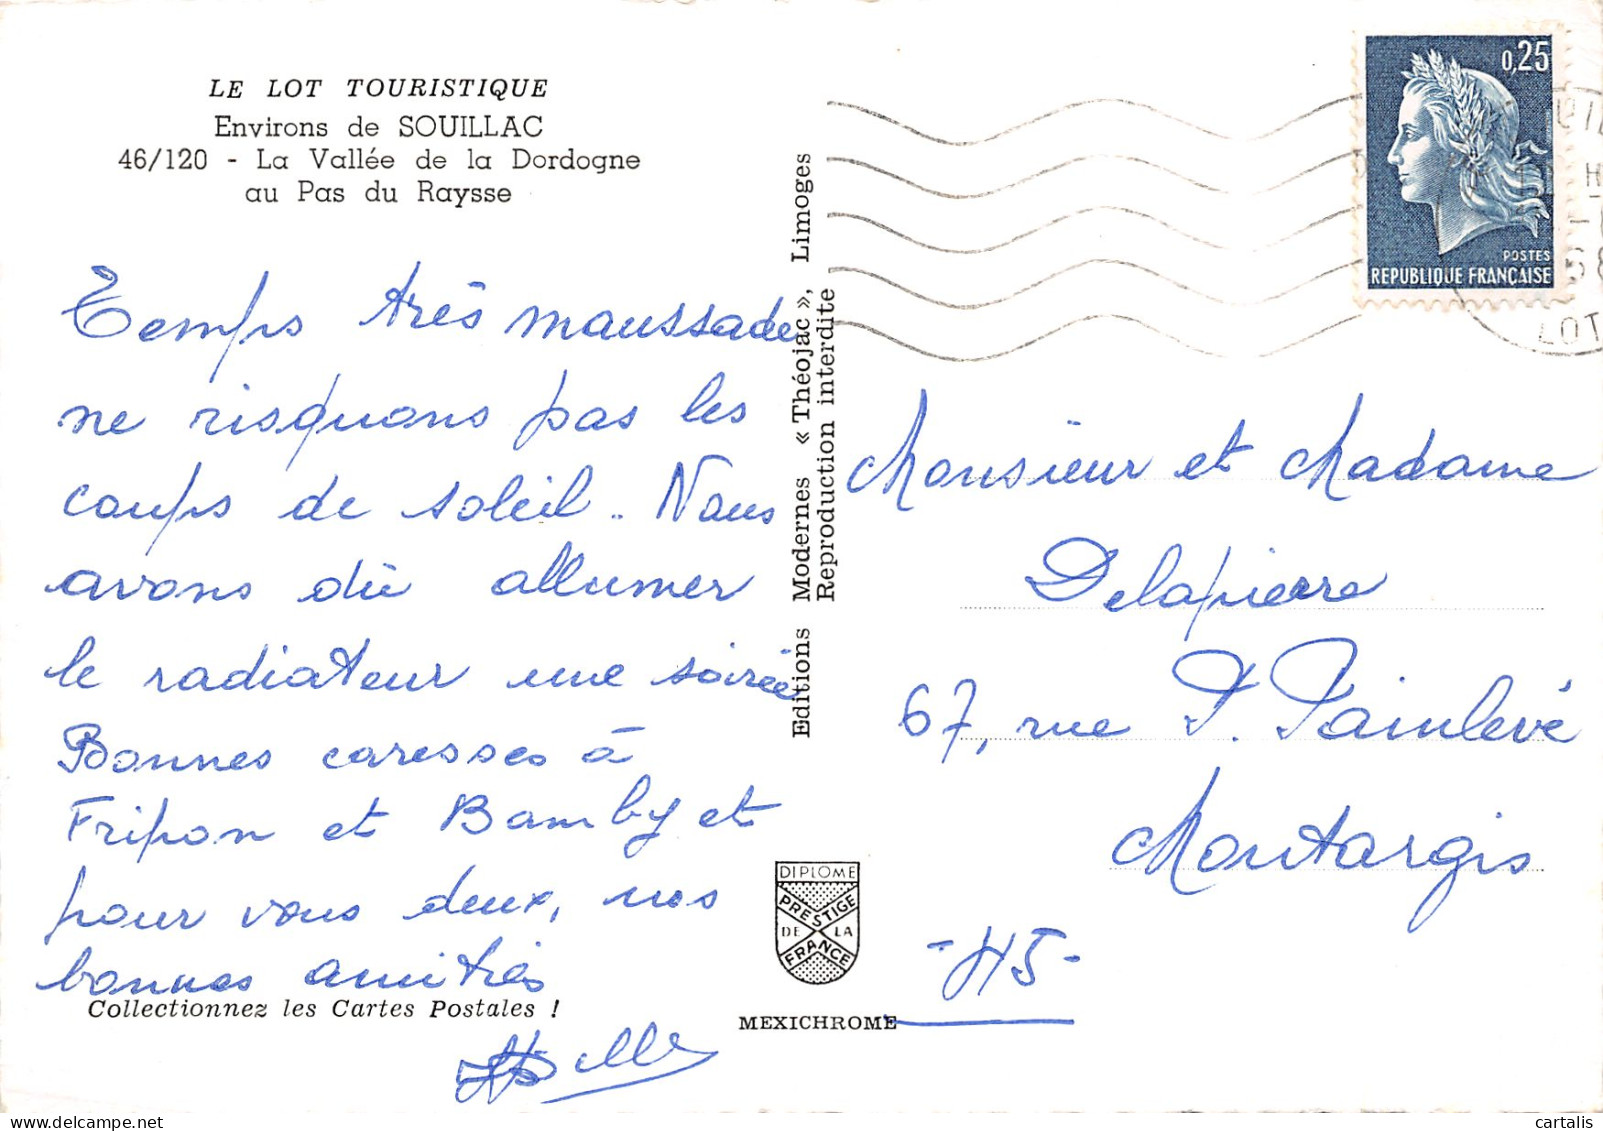 LE LOT TOURISTIQUE
Environs de SOUILLAC
46/120 - La Vallée de la Dordogne
au Pas du Raysse
Temps très maussade
ne risquons pas les
coups de soleil. Nous
avons dû allumer
le radiateur une soirée
Bonnes caresses à
Fripon et Bamby et
pour vous deux, nos
bonnes amitiés
Collectionnez les Cartes Postales !
Editions Modernes « Théojac », Limoges
Reproduction interdite
DIPLOME
PRESTIGE
DE LA
FRANCE
MEXICHROME
0,25
POSTES
REPUBLIQUE FRANÇAISE
LOT
Monsieur et Madame
Delapierre
67, rue P. Painlevé
Montargis
-45-
cartalis